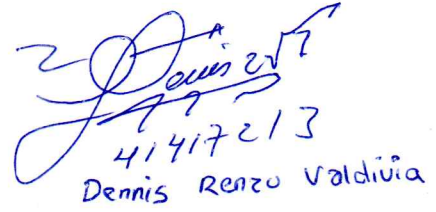 41417213
Dennis Renzo Valdivia